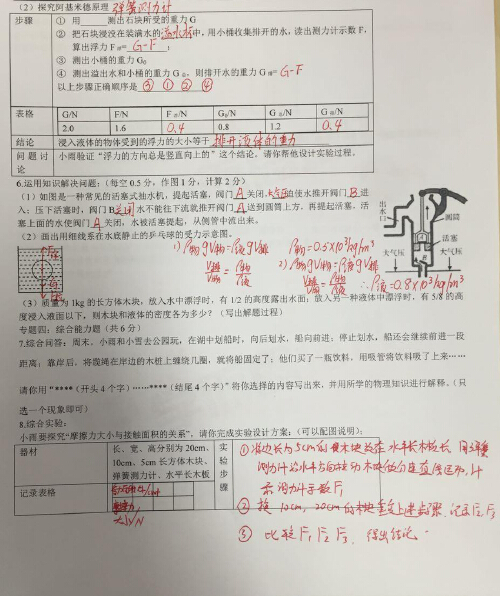 (2) 探究阿基米德原理 弹簧测力计
步骤 ① 用____测出石块所受的重力 G
② 把石块浸没在装满水的溢水杯中,用小桶收集排开的水,读出测力计示数 F,
算出浮力 F浮= G-F ;
③ 测出小桶的重力 G₀
④ 测出溢出水和小桶的重力 G总,则排开水的重力 G排=
以上步骤正确顺序是 ③ ① ② ④
表格 G/N F/N F浮/N G₀/N G总/N G排/N
2.0 1.6 0.4 0.8 1.2 0.4
结论 浸入液体的物体受到的浮力的大小等于 排开液体的重力
问题讨论 小雨验证“浮力的方向总是竖直向上的”这个结论,请你帮他设计实验过程。
6.运用知识解决问题:(每空 0.5 分,作图 1 分,计算 2 分)
(1) 如图是一种常见的活塞式抽水机,提起活塞,阀门 A 关闭,大气压迫使水推开阀门 B 进
入;压下活塞时,阀门 B 关闭 水不能往下流就推开阀门 A 送到圆筒上方,再提起活塞,活
塞上面的水使阀门 A 关闭,水被活塞提起,从侧管中流出来。
出水口
圆筒
活塞
大气压 大气压
(2) 画出用细线系在水底静止的乒乓球的受力示意图。
1) ρ物gV物=ρ液gV排 ρ物=0.5×10³kg/m³
2) ρ物gV物=ρ液gV排
∴ρ液=0.8×10³kg/m³
(3) 质量为 1kg 的长方体木块,放入水中漂浮时,有 1/2 的高度露出水面;放入另一种液体中漂浮时,有 5/8 的高
度浸入液面以下,则木块和液体的密度各为多少?(写出解题过程)
专题四:综合能力题(共 6 分)
7.综合问答:周末,小雨和小雪去公园玩,在湖中划船时,向后划水,船向前进;停止划水,船还会继续前进一段
距离;靠岸后,将缆绳在岸边的木桩上缠绕几圈,就将船固定了;他们买了一瓶饮料,用吸管将饮料吸了上来……
请你用“****(开头 4 个字)……****(结尾 4 个字)”将你选择的内容写出来,并用所学的物理知识进行解释。(只
选一个现象即可)
8.综合实验:
小雨要探究“摩擦力大小与接触面积的关系”,请你完成实验设计方案:(可以配图说明):
器材 长、宽、高分别为 20cm、
10cm、5cm 长方体木块、
弹簧测力计、水平长木板
实验步骤
记录表格
② 换 10cm, 20cm
③ 比较 F₁ F₂ F₃, 得出结论